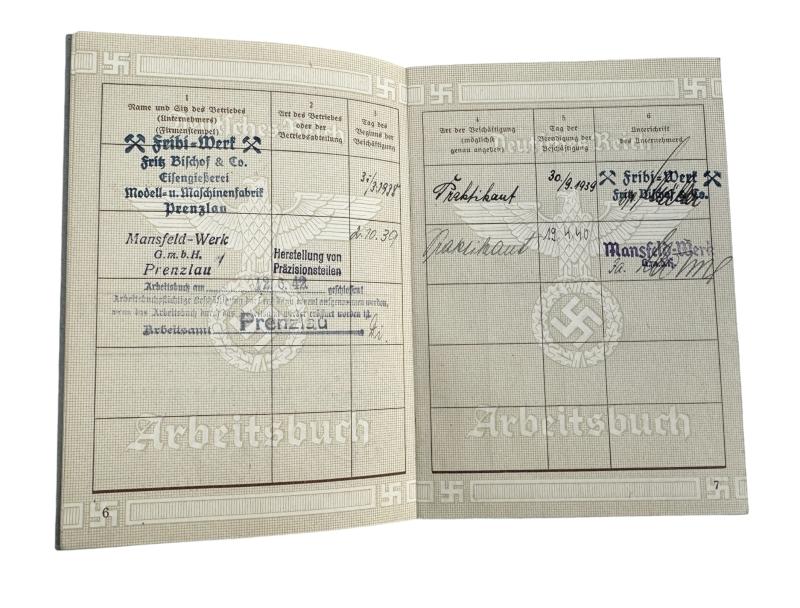 1
Name und Sitz des Betriebes
(Unternehmers)
(Firmenstempel)
2
Art des Betriebes
oder der
Betriebsabteilung
3
Tag des
Beginns der
Beschäftigung
Deutsches Reich
Fribi-Werk
Fritz Bischof & Co.
Eisengießerei
Modell- u. Maschinenfabrik
Prenzlau
Mansfeld-Werk
G.m.b.H.
Prenzlau
Herstellung von
Präzisionsteilen
2.10.39
Arbeitsbuch am 12.6.42 geschlossen!
Arbeitsbuchpflichtige Beschäftigung darf erst dann erneut aufgenommen werden,
wenn das Arbeitsbuch durch das Arbeitsamt wieder eröffnet worden ist.
Arbeitsamt Prenzlau
Arbeitsbuch
6
4
Art der Beschäftigung
(möglichst
genau angeben)
5
Tag der
Beendigung der
Beschäftigung
6
Unterschrift
des Unternehmers
Deutsches Reich
Praktikant
30/9.1939
Fribi-Werk
Fritz Bischof & Co.
Praktikant
19.4.40
Mansfeld-Werk
G.m.b.H.
Arbeitsbuch
7